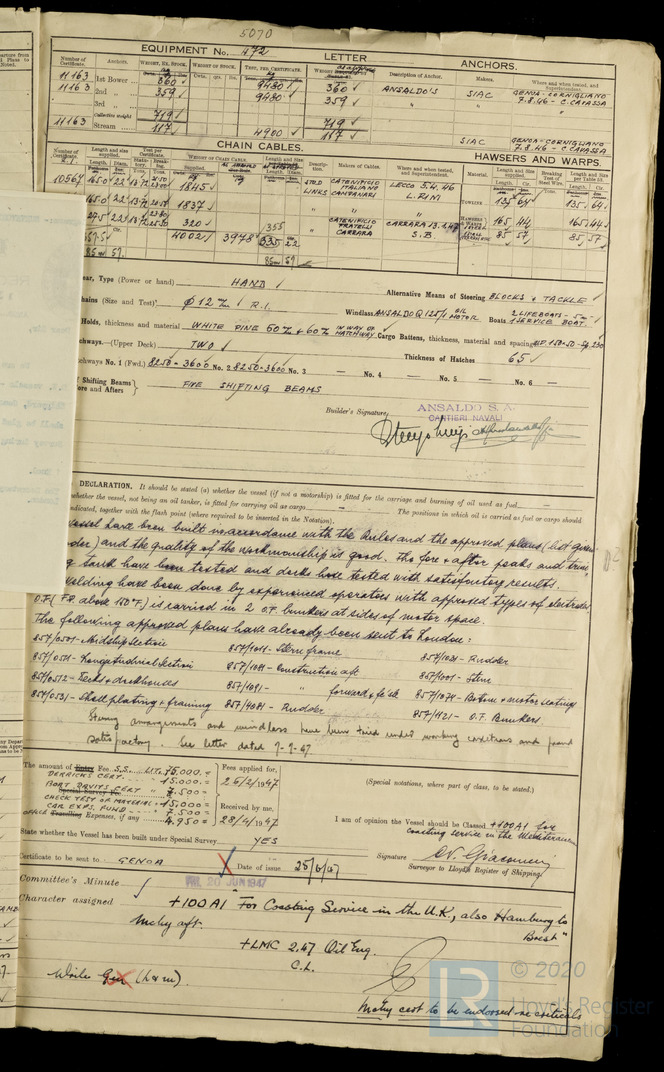 5070
EQUIPMENT No. 472 LETTER ANCHORS.
Number of Certificate. Anchors. WEIGHT, EX. STOCK. WEIGHT OF STOCK. TEST, PER CERTIFICATE. Description of Anchor. Makers. Where and when tested, and Superintendent.
11163 1st Bower 360 9430 360 ANSALDO'S SIAC GENOA-CORNIGLIANO
11163 2nd " 359 9430 359 " " 7.8.46 - C. CAVASSA
3rd " "
Collective weight 719 719
11163 Stream 117 4900 117 SIAC GENOA-CORNIGLIANO
7.8.46 - C. CAVASSA
CHAIN CABLES. HAWSERS AND WARPS.
Number of Certificate. Length and size supplied. Test per Certificate. WEIGHT OF CHAIN CABLE. Length and Size Description. Makers of Cables. Where and when tested, and Superintendent. Material. Length and Size supplied. Breaking Test of Steel Wire. Length and Size per Table 53.
10567 165.0 22 1845 STUD LINKS CATENIFICIO ITALIANO CANTANARI LECCO 5.4.46 L. FINI TOWLINE 135 64 135 64
165.0 22 1837 " " " HAWSERS & WARPS 165 44 165 44
27.5 22 320 355 " CATENIFICIO FRATELLI CARRARA CARRARA 13.1.47 S.B 85 57 85 57
357.5 4002 3978 335 22
85 m 57 85 m 57
ear, Type (Power or hand) HAND Alternative Means of Steering BLOCKS & TACKLE
hains (Size and Test) Ø 12 m/m R.I. Windlass ANSALDO Q 125/1 OIL MOTOR Boats 2 LIFEBOATS - 5 m 1 SERVICE BOAT
Holds, thickness and material WHITE PINE 50 m/m & 60 m/m IN WAY OF HATCHWAY Cargo Battens, thickness, material and spacing W.P. 150 x 50 - Sp. 230
tchways.—(Upper Deck) TWO Thickness of Hatches 65
tchways No. 1 (Fwd.) 8250 x 3600 No. 2 8250 x 3600 No. 3 — No. 4 — No. 5 — No. 6 —
f Shifting Beams ore and Afters FIVE SHIFTING BEAMS
Builder's Signature, ANSALDO S. A.
CANTIERI NAVALI
DECLARATION. It should be stated (a) whether the vessel (if not a motorship) is fitted for the carriage and burning of oil used as fuel —
whether the vessel, not being an oil tanker, is fitted for carrying oil as cargo — The positions in which oil is carried as fuel or cargo should
ndicated, together with the flash point (where required to be inserted in the Notation).
vessel have been built in accordance with the Rules and the approved plans (list given
der) and the quality of the workmanship is good. The fore & after peaks and trim
g tank have been tested and decks hose tested with satisfactory results.
Welding have been done by experienced operators with approved types of electrodes
O.F. (F.P. above 150° F.) is carried in 2 O.F. bunkers at sides of motor space.
The following approved plans have already been sent to London:
857/0501 - Midship Section 857/1011 - Stern frame 857/1021 - Rudder
857/0511 - Longitudinal Section 857/1081 - Construction aft 857/1001 - Stem
857/0512 - Decks & deckhouses 857/1091 - " forward & fo'cle 857/1071 - Bottom & motor seatings
857/0531 - Shell plating & framing 857/4081 - Rudder 857/1121 - O.F. Bunkers
Steering arrangements and windlass have been tried under working conditions and found
satisfactory. See letter dated 7-7-47.
The amount of Entry Fee S.S. LIT. 75.000 = Fees applied for,
DERRICKS CERT. " 15.000 = 26/2/1947
BOAT DAVITS CERT " 7.500 = (Special notations, where part of class, to be stated.)
CHECK TEST OF MATERIAL - 15.000 = Received by me,
CAR EXPS. FUND - 7.500 = 28/2/1947
OFFICE Travelling Expenses, if any 4.950 =
I am of opinion the Vessel should be Classed +100A1 for
coasting service in the Mediterranean
State whether the Vessel has been built under Special Survey YES
Certificate to be sent to GENOA Date of issue 25/6/47
Signature
Surveyor to Lloyd's Register of Shipping
Committee's Minute FRI. 20 JUN 1947
Character assigned +100A1 For Coasting Service in the U.K., also Hamburg to
Brest"
Mchy aft.
+LMC 2.47 Oil Eng.
C.L.
Write Gen (Lam).
Mchy cert to be endorsed re criticals
LR © 2020
Lloyd's Register
Foundation